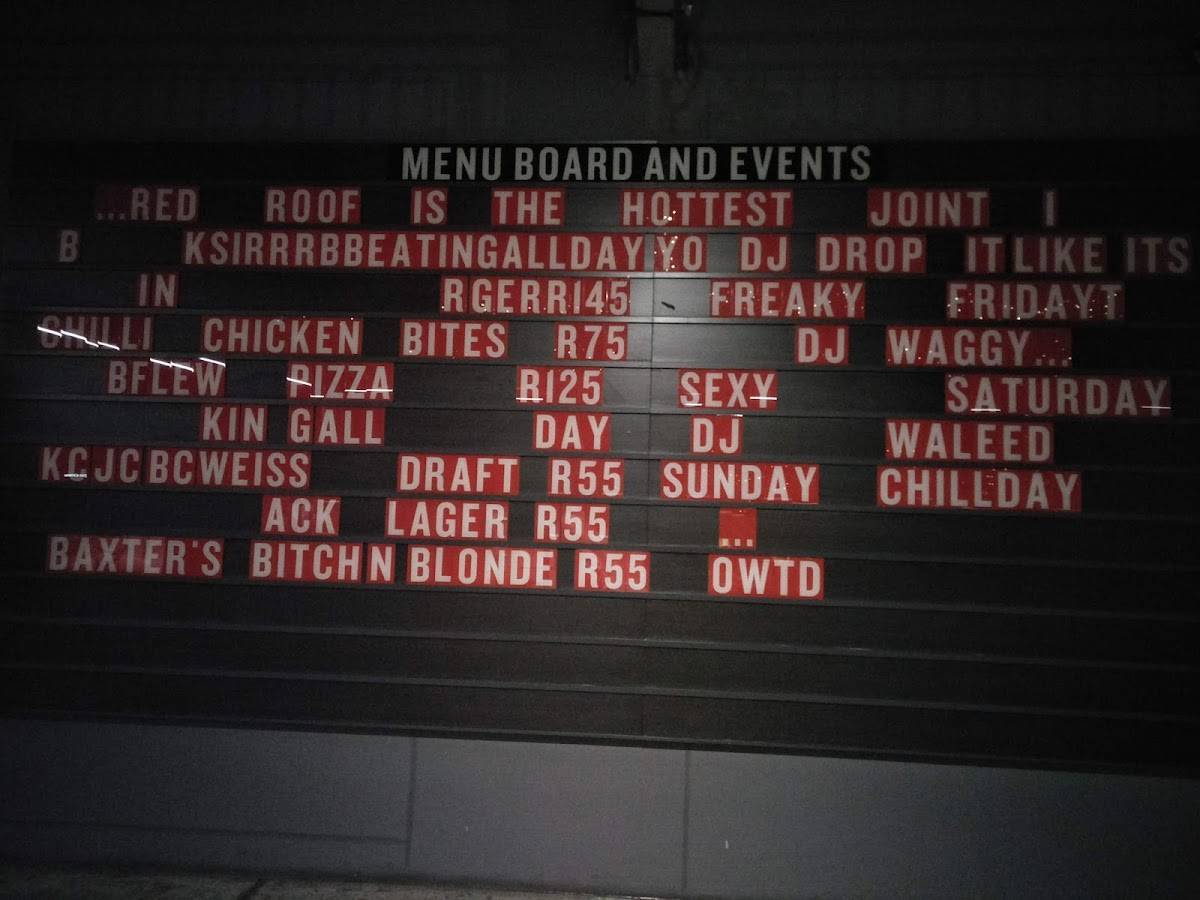 MENU BOARD AND EVENTS
...RED ROOF IS THE HOTTEST JOINT I
B KSIRRRBBEATINGALLDAY YO DJ DROP IT LIKE ITS
IN RGERR145 FREAKY FRIDAYT
CHILLI CHICKEN BITES R75 DJ WAGGY...
BFLEW PIZZA R125 SEXY SATURDAY
KIN GALL DAY DJ WALEED
KCJCBCWEISS DRAFT R55 SUNDAY CHILLDAY
ACK LAGER R55 ...
BAXTER'S BITCH N BLONDE R55 OWTD